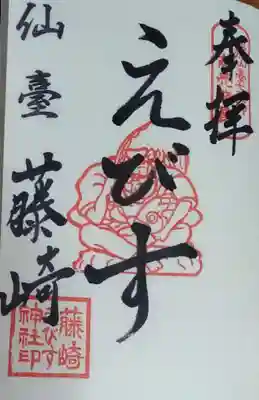 奉拝
えびす
仙臺
藤崎
藤崎
えびす
神社印